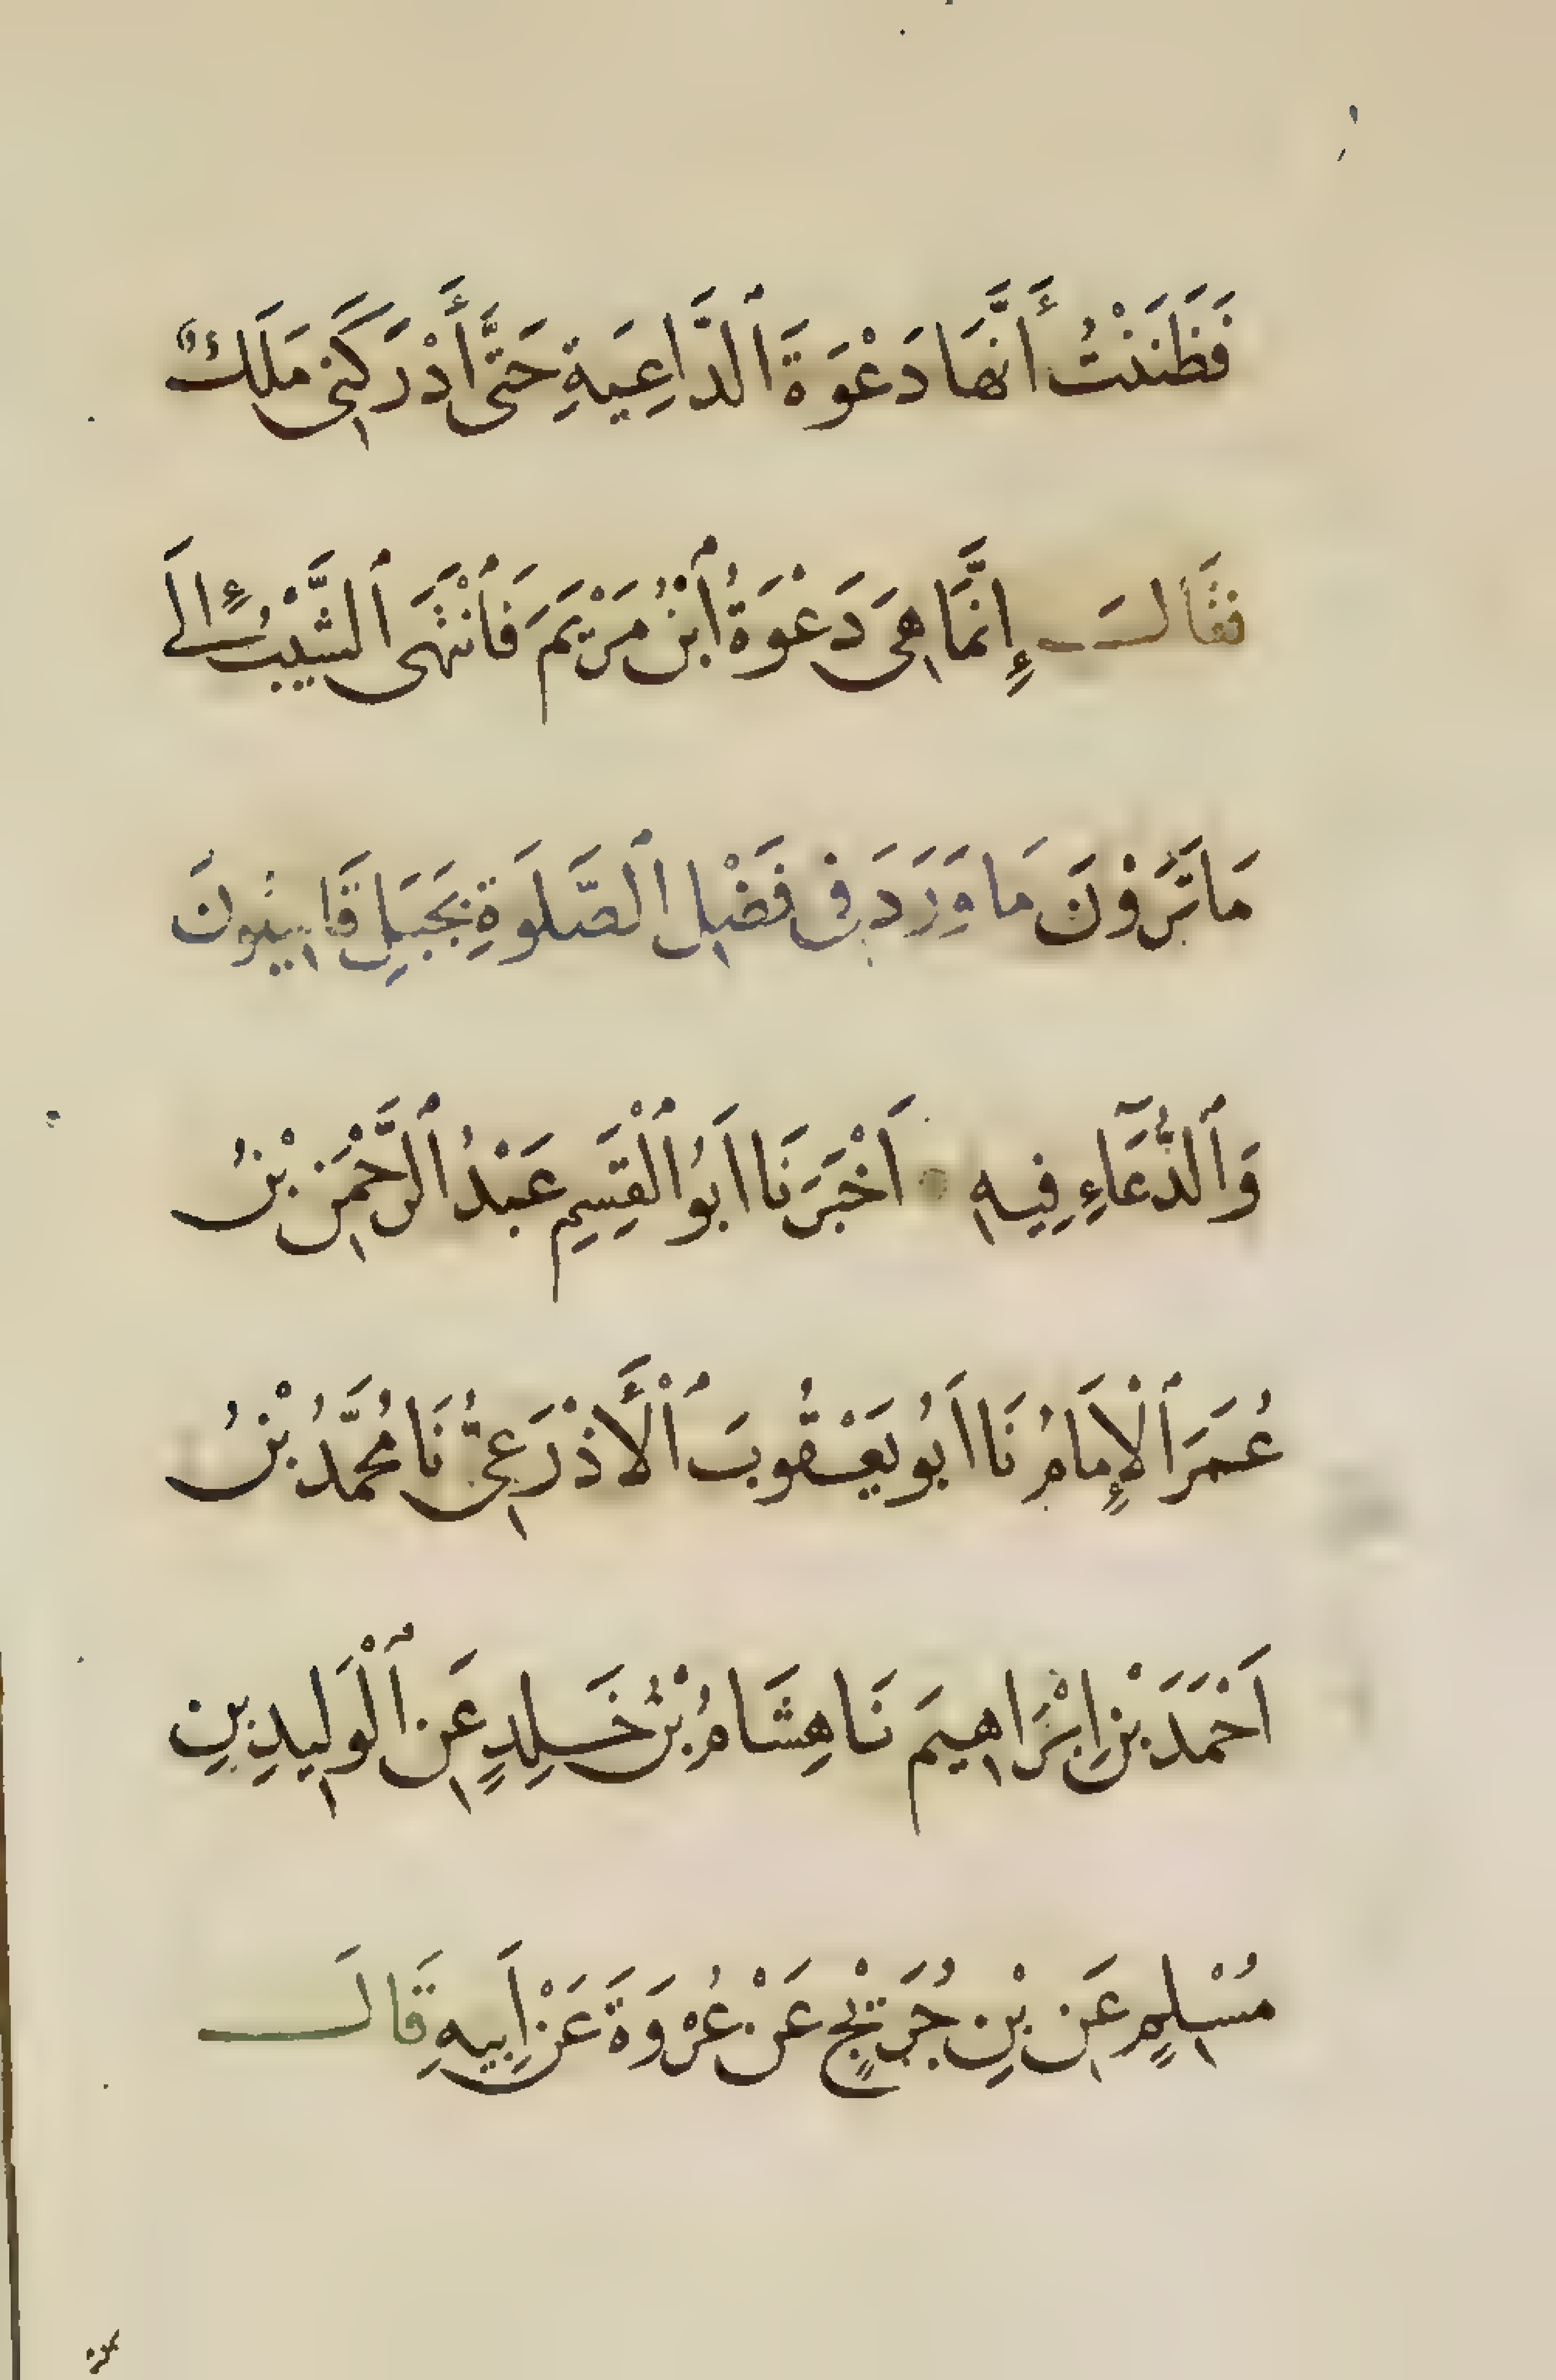 فَظَنَنْتُ أَنَّهَا دَعْوَةَ ٱلدَّاعِيَةِ حَتَّى أَدْرَكَنِى مَلَكٌ
فَقَالَ إِنَّمَا هِىَ دَعْوَةُ ٱبْنُ مَرْيَمَ فَٱنْتَهَى ٱلشَّيْبُ إِلَى
مَا تَرَوْنَ مَا وَرَدَ فِى فَضْلِ ٱلصَّلَوةِ بِجَبَلِ قَاسِيُونَ
وَٱلدُّعَآءِ فِيهِ اَخْبَرَنَا اَبُو ٱلْقٰسِمِ عَبْدُ ٱلرَّحْمٰنِ بْنُ
عُمَرَ ٱلْإِمَامُ نَا اَبُو يَعْقُوبَ ٱلْأَذْرَعِىُّ نَا مُحَمَّدُ بْنُ
اَحْمَدَ بْنِ اِبْرَاهِيمَ نَا هِشَامُ بْنُ خَلِدٍ عَنِ ٱلْوَلِيدِ بِنِ
مُسْلِمٍ عَنِ بْنِ جُرَيْجٍ عَنْ عُرْوَةَ عَنْ اَبِيهِ قَالَ